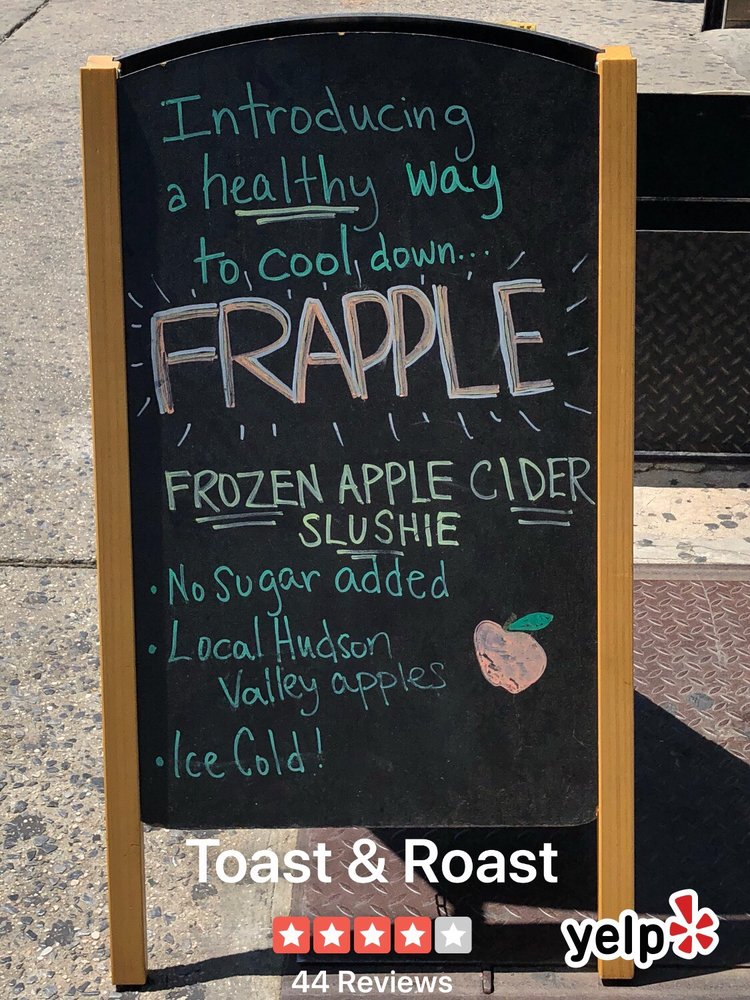 Introducing
a healthy way
to cool down...
FRAPPLE
FROZEN APPLE CIDER
SLUSHIE
· No Sugar added
· Local Hudson
Valley apples
· Ice Cold!
Toast & Roast
44 Reviews
yelp